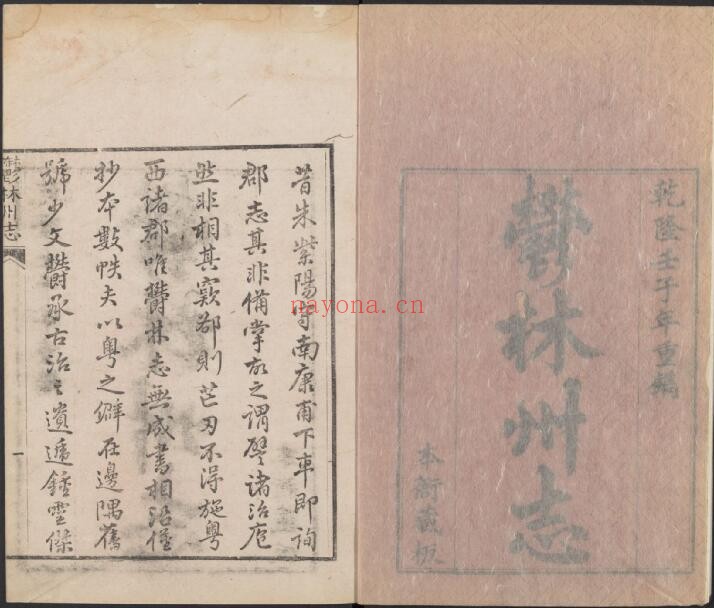 乾隆壬子年重編
鬱林州志
本衙藏板
昔朱紫陽守南康甫下車即詢
郡志其非備掌故之謂譬諸治庖
然非相其窾郤則芒刃不得施粵
西諸郡唯鬱林志無成書相沿僅
抄本數帙夫以粵之僻在邊隅舊
號少文鬱承古治之遺遞鍾靈傑
鬱林州志
一
nayona.cn